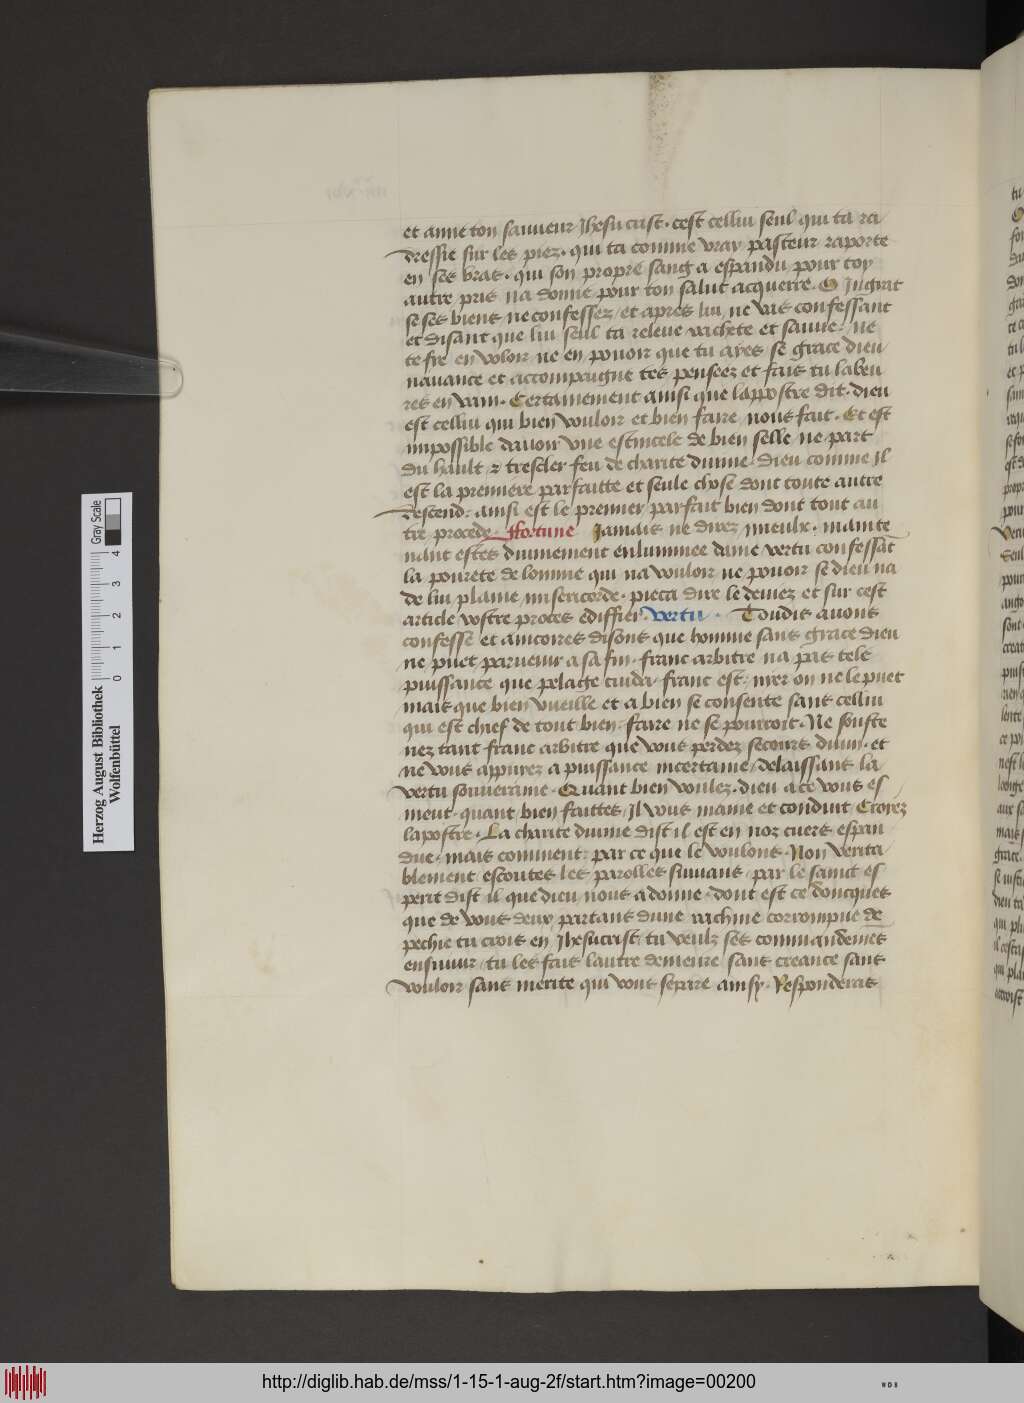 et anne ton sauueur Jhesucrist · cest cellui seul qui ta ra
dressie sur les piez · qui ta comme vray pasteur raporte
en ses bras · qui son propre sang a espandu pour toy
autre pris na donne pour ton salut acquerre · O Jngrat
se ses biens ne confessez / et apres lui / ne vas confessant
et disant que lui seul ta releue rachete et sauue · ne
te fie en voloir ne en pouoir que tu ayes se grace dieu
nauance et accompaigne tes pensees et fais tu labeu
res en vain · Certainement ainsi que lappostre dit · dieu
est cellui qui bien vouloir et bien faire nous fait · Et est
impossible dauoir vne estincele de bien selle ne part
du hault & trescler feu de charite diuine · dieu comme jl
est la premiere parfaitte et seule chose dont toute autre
descend : ainsi est le premier parfait bien dont tout au
tre procede · ffortune Jamais ne direz mieulx · mainte
nant estes diuinement enluminee dame vertu confessāt
la pourete de lomme qui na vouloir ne pouoir se dieu na
de lui plaine misericorde · pieca dire le deuiez et sur cest
article vostre proces ediffier · vertu · Toudis auons
confesse et aincores disons que homme sans grace dieu
ne puet paruenir a sa fin · franc arbitre na pas tele
puissance que pelage cuida · franc est · nyer on ne le puet
mais que bien vueille et a bien se consente sans cellui
qui est chief de tout bien · faire ne se pourroit · Ne souste
nez tant franc arbitre que vous perdez secours diuin · et
ne vous appuyez a puissance incertaine / delaissans la
vertu souueraine · Quant bien voulez · dieu a ce vous es
meut · quant bien faittes / Jl vous maine et conduit Croyez
lapostre · La charite diuine dist il est en noz cuers espan
due · mais comment : par ce que le voulons · Non verita
blement escoutes les parolles siuuans / par le saint es
perit dist il que dieu nous a donne · dont est ce doncques
que de vous deux partans dune rachine corrompue de
pechie tu crois en Jhesucrist / tu veulz ses commandemēs
ensiuuir / tu les fais lautre demeure sans creance sans
vouloir sans merite qui vous separe ainsy · Responderas
Herzog August Bibliothek
Wolfenbüttel
0 1 2 3 4
Gray Scale
http://diglib.hab.de/mss/1-15-1-aug-2f/start.htm?image=00200
WDB